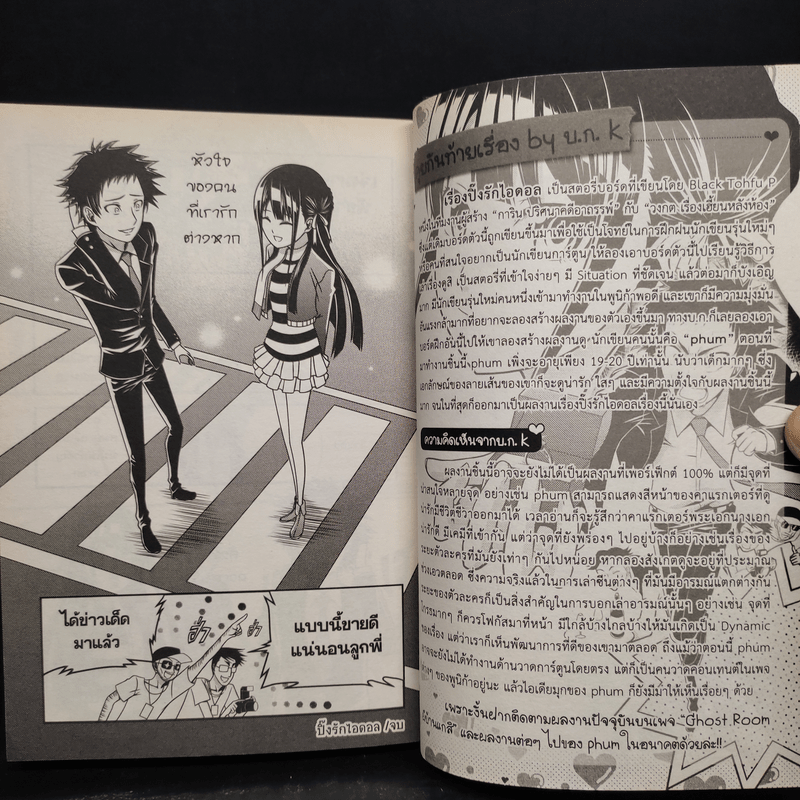 หัวใจ
ของคน
ที่เรารัก
ต่างหาก
ได้ข่าวเด็ด
มาแล้ว
ฮ่า
ฮ่า
แบบนี้ขายดี
แน่นอนลูกพี่
ปิ๊งรักไอดอล /จบ
กันท้ายเรื่อง by บ.ก. k
เรื่องปิ๊งรักไอดอล เป็นสตอรี่บอร์ดที่เขียนโดย Black Tohfu P
หนึ่งในทีมงานผู้สร้าง "การินปริศนาคดีอาถรรพ์" กับ "วงกต เรื่องเฮี้ยนหลังห้อง"
ซึ่งแต่เดิมบอร์ดตัวนี้ถูกเขียนขึ้นมาเพื่อใช้เป็นโจทย์ในการฝึกฝนนักเขียนรุ่นใหม่ๆ
หรือคนที่สนใจอยากเป็นนักเขียนการ์ตูน ให้ลองเอาบอร์ดตัวนี้ไปเรียนรู้วิธีการ
เล่าเรื่องดูสิ เป็นสตอรี่ที่เข้าใจง่ายๆ มี Situation ที่ชัดเจน แล้วต่อมาก็บังเอิญ
มาก มีนักเขียนรุ่นใหม่คนหนึ่งเข้ามาทำงานในพูนิก้าพอดี และเขาก็มีความมุ่งมั่น
อันแรงกล้ามากที่อยากจะลองสร้างผลงานของตัวเองขึ้นมา ทางบ.ก.ก็เลยลองเอา
บอร์ดฝึกอันนี้ไปให้เขาลองสร้างผลงานดู นักเขียนคนนั้นคือ "phum" ตอนที่
มาทำงานชิ้นนี้ phum เพิ่งจะอายุเพียง 19-20 ปีเท่านั้น นับว่าเด็กมากๆ ซึ่ง
เอกลักษณ์ของลายเส้นของเขาก็จะดูน่ารัก ใสๆ และมีความตั้งใจกับผลงานชิ้นนี้
มาก จนในที่สุดก็ออกมาเป็นผลงานเรื่องปิ๊งรักไอดอลเรื่องนี้นั่นเอง
ความคิดเห็นจากบ.ก. k
ผลงานชิ้นนี้อาจจะยังไม่ได้เป็นผลงานที่เพอร์เฟ็กต์ 100% แต่ก็มีจุดที่
น่าสนใจหลายจุด อย่างเช่น phum สามารถแสดงสีหน้าของคาแรกเตอร์ที่ดู
น่ารักมีชีวิตชีวาออกมาได้ เวลาอ่านก็จะรู้สึกว่าคาแรกเตอร์พระเอกนางเอก
น่ารักดี มีเคมีที่เข้ากัน แต่ว่าจุดที่ยังพร่องๆ ไปอยู่บ้างก็อย่างเช่นเรื่องของ
ระยะตัวละครที่มันยังเท่าๆ กันไปหน่อย หากลองสังเกตดูจะอยู่ที่ประมาณ
ช่วงเอวตลอด ซึ่งความจริงแล้วในการเล่าซีนต่างๆ ที่มันมีอารมณ์แตกต่างกัน
ระยะของตัวละครก็เป็นสิ่งสำคัญในการบอกเล่าอารมณ์นั้นๆ อย่างเช่น จุดที่
โกรธมากๆ ก็ควรโฟกัสมาที่หน้า มีใกล้บ้างไกลบ้างให้มันเกิดเป็น Dynamic
ของเรื่อง แต่ว่าเราก็เห็นพัฒนาการที่ดีของเขามาตลอด ถึงแม้ว่าตอนนี้ phum
อาจจะยังไม่ได้ทำงานด้านวาดการ์ตูนโดยตรง แต่ก็เป็นคนวาดคอนเทนต์ในเพจ
ต่างๆ ของพูนิก้าอยู่นะ แล้วไอเดียมุกของ phum ก็ยังมีมาให้เห็นเรื่อยๆ ด้วย
เพราะงั้นฝากติดตามผลงานปัจจุบันบนเพจ "Ghost Room
ผีบ้านแกสิ" และผลงานต่อๆ ไปของ phum ในอนาคตด้วยล่ะ!!